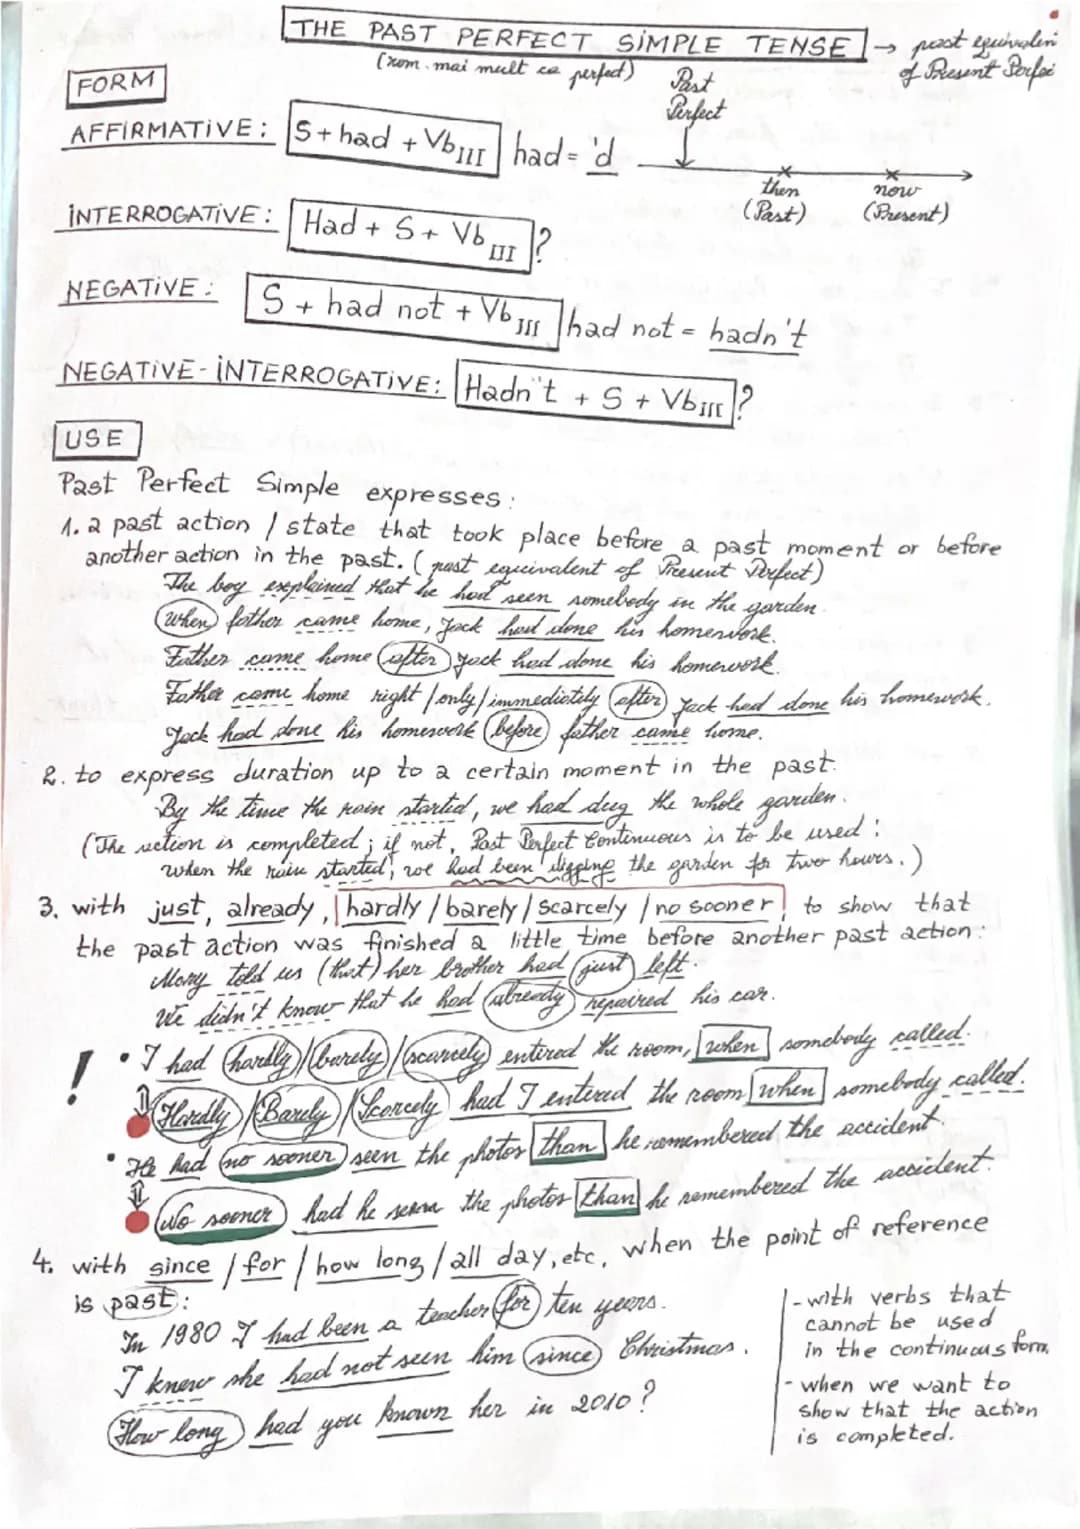 THE PAST PERFECT SIMPLE TENSE → past equivalen
(rom. mai mult ca perfect) of Present Perfec
FORM
Past
Perfect
AFFIRMATIVE: S + had + VbIII had = 'd
then now
(Past) (Present)
INTERROGATIVE: Had + S + VbIII ?
NEGATIVE: S + had not + VbIII had not = hadn't
NEGATIVE-INTERROGATIVE: Hadn't + S + VbIII ?
USE
Past Perfect Simple expresses:
1. a past action / state that took place before a past moment or before
another action in the past. (past equivalent of Present Perfect)
The boy explained that he had seen somebody in the garden.
When father came home, Jack had done his homework.
Father came home after Jack had done his homework.
Father came home right / only / immediately after Jack had done his homework.
Jack had done his homework before father came home.
2. to express duration up to a certain moment in the past.
By the time the rain started, we had dug the whole garden.
(The action is completed; if not, Past Perfect Continuous is to be used:
when the rain started, we had been digging the garden for two hours.)
3. with just, already, hardly / barely / scarcely / no sooner to show that
the past action was finished a little time before another past action:
Mary told us (that) her brother had just left.
We didn't know that he had already repaired his car.
! • I had hardly / barely / scarcely entered the room, when somebody called.
Hardly / Barely / Scarcely had I entered the room when somebody called.
• He had no sooner seen the photos than he remembered the accident.
No sooner had he seen the photos than he remembered the accident.
4. with since / for / how long / all day, etc, when the point of reference
is past:
In 1980 I had been a teacher for ten years.
I knew she had not seen him since Christmas.
How long had you known her in 2010?
- with verbs that
cannot be used
in the continuous form.
- when we want to
show that the action
is completed.